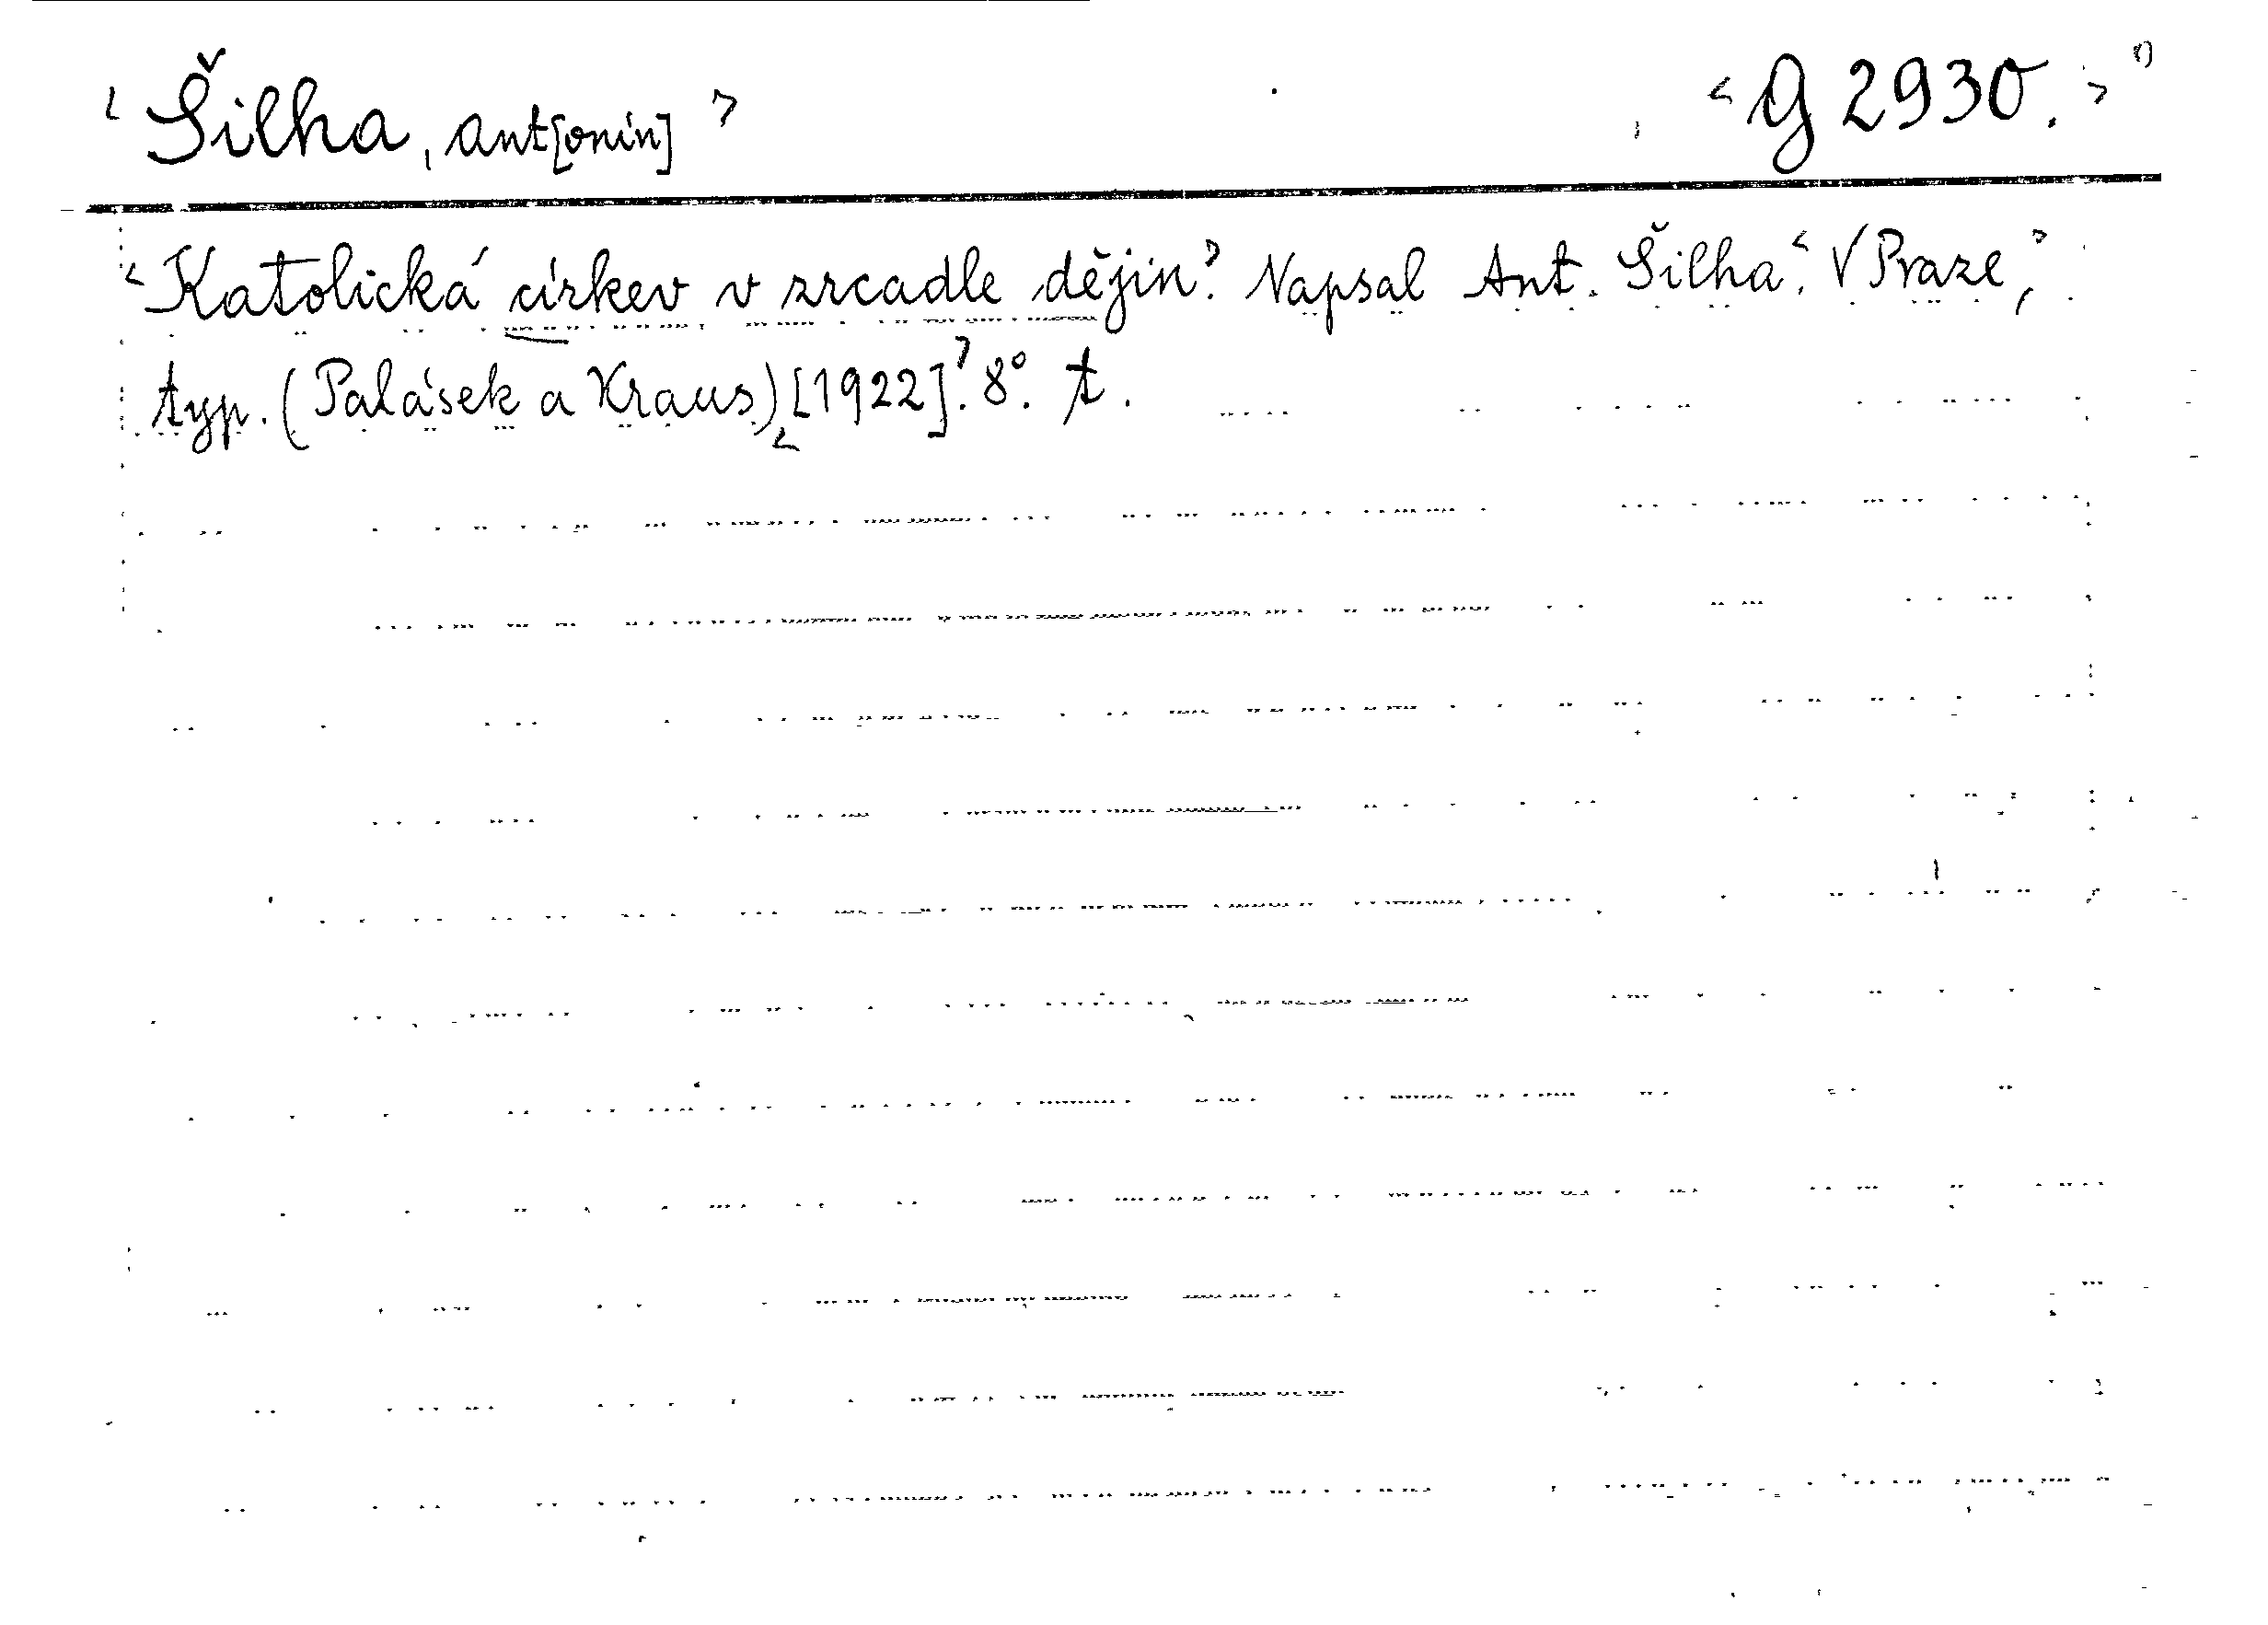 <Šilha, Ant[onín]> <G 2930.>
<Katolická církev v zrcadle dějin>. Napsal Ant. Šilha. <V Praze,>
typ. (Palásek a Kraus) <[1922]>. 8°. t.